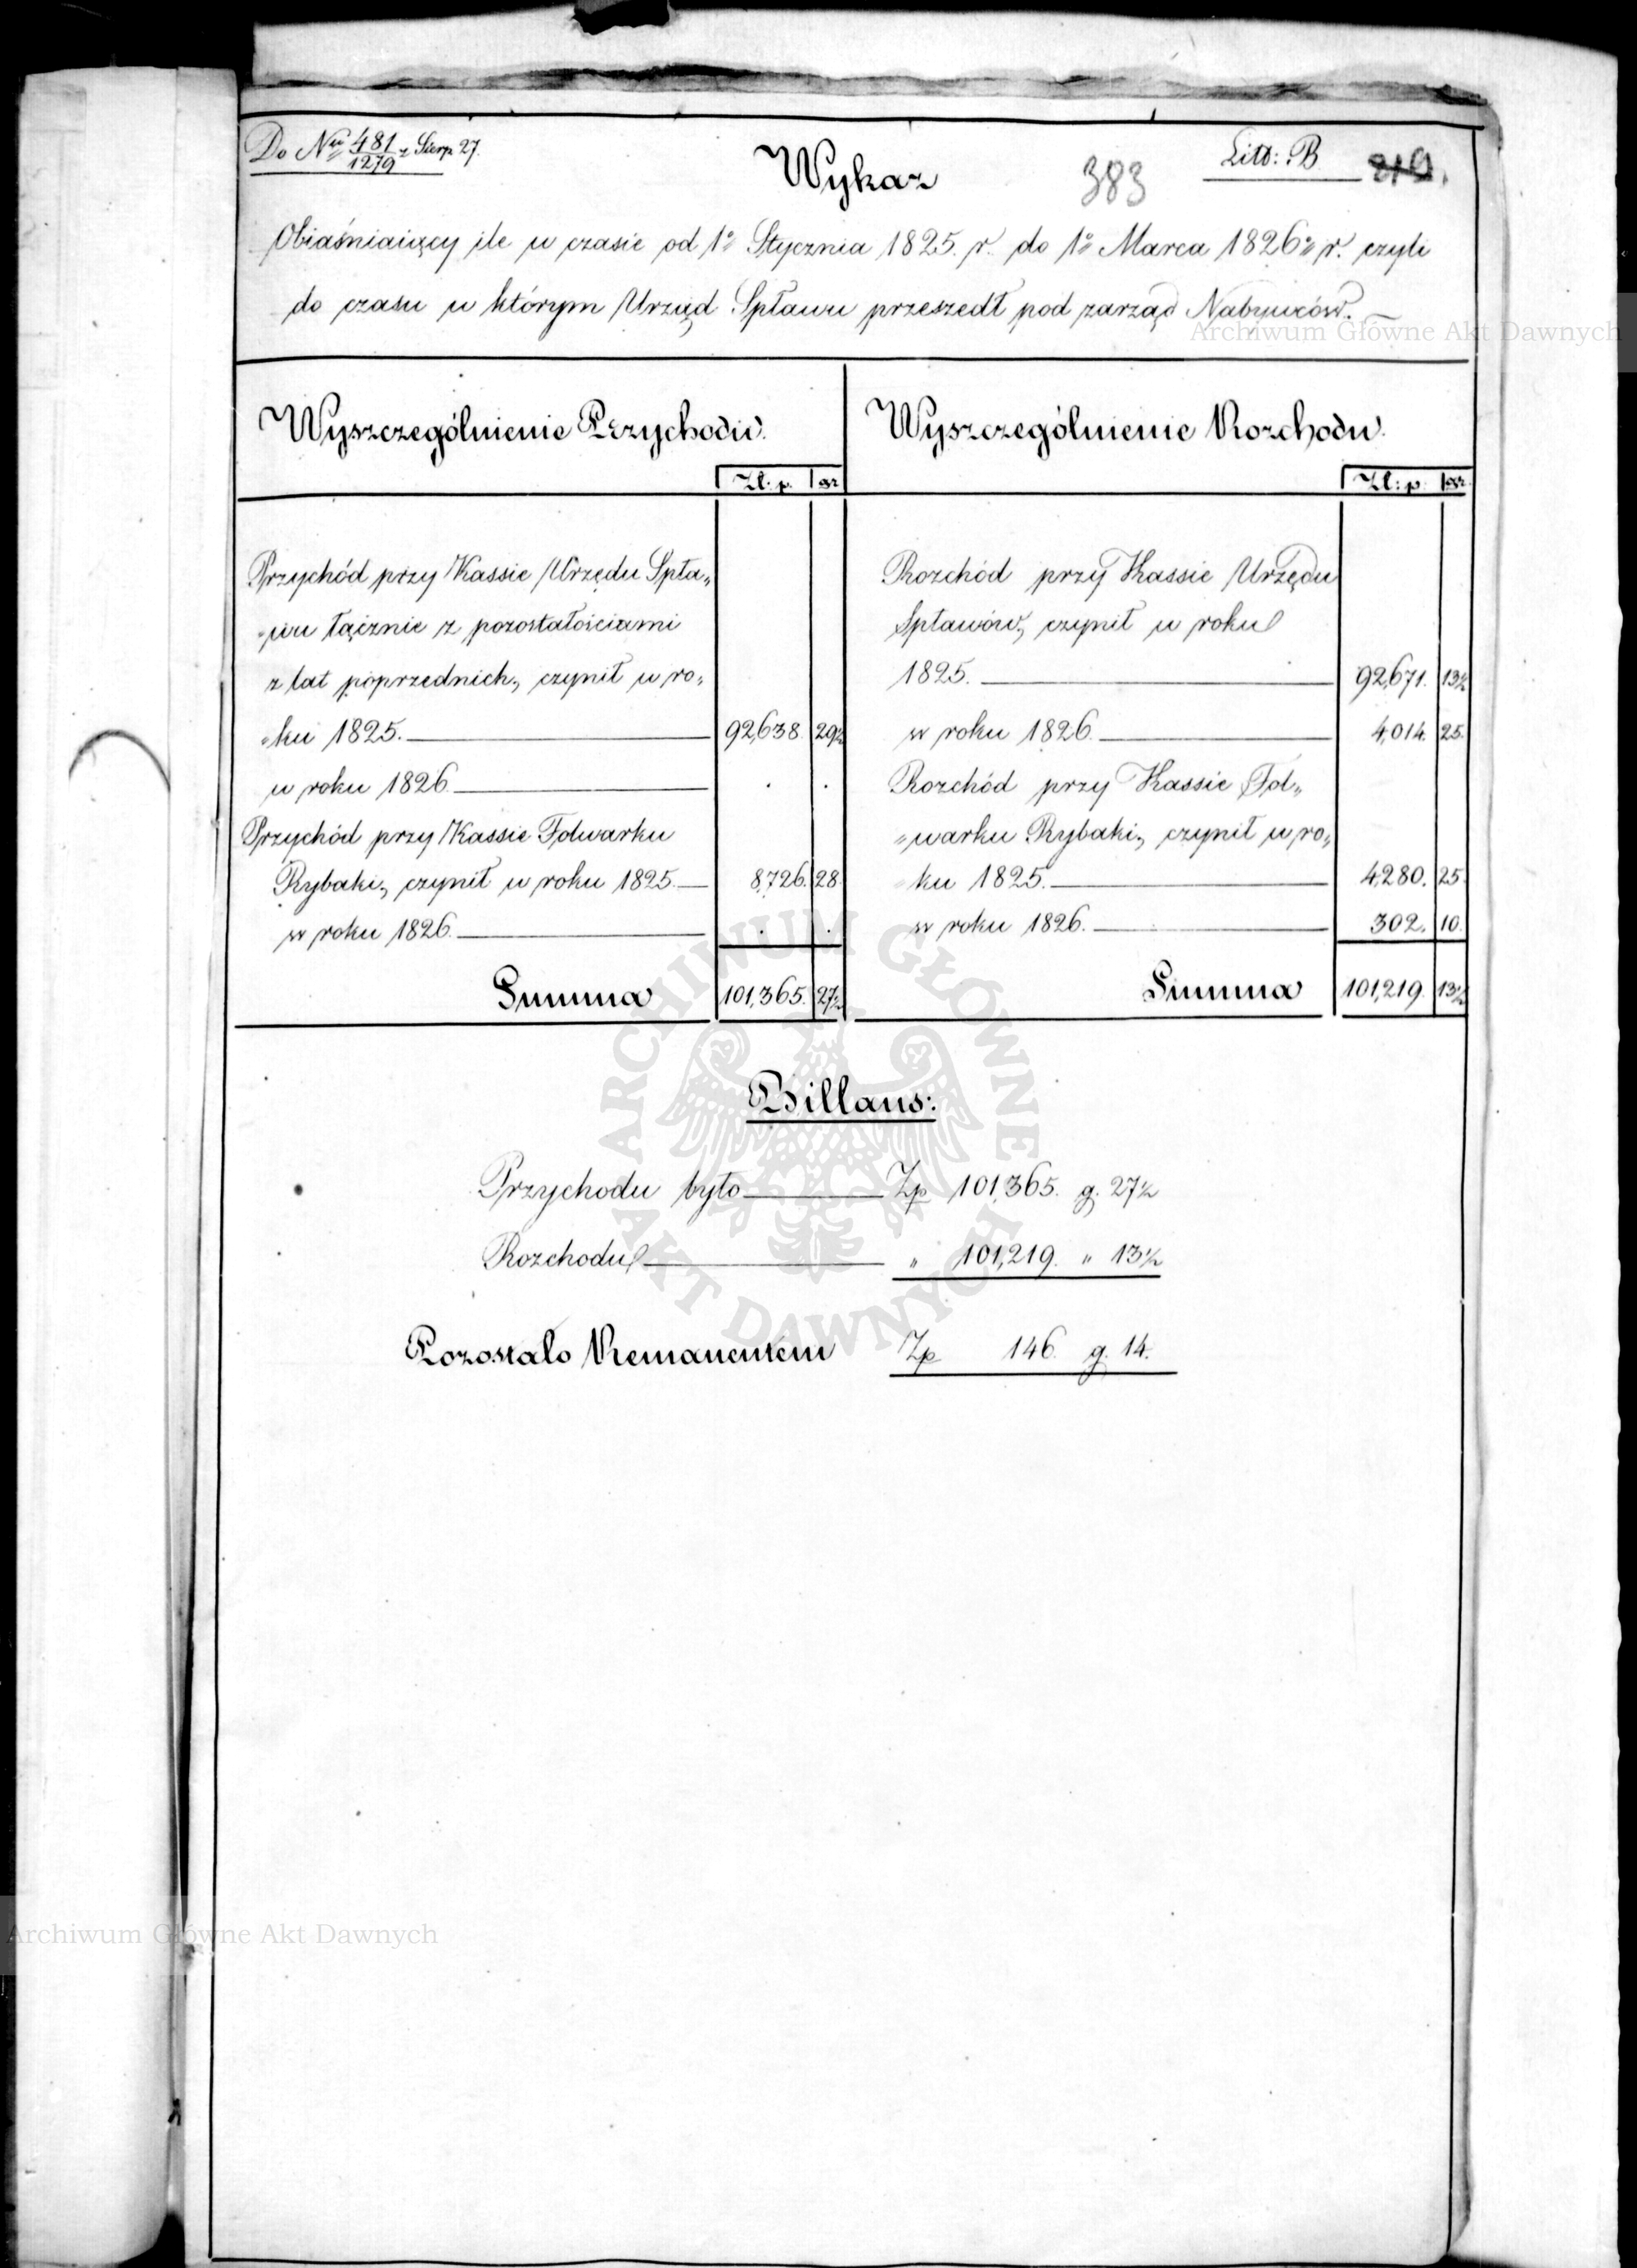 Do Nru 481/1279 z Sierp 27.
Litt: B.
219.
Wykaz
383
Obiaśniaiący ile w czasie od 1o Stycznia 1825. r. do 1o Marca 1826o r. czyli
do czasu w którym Urząd Spławu przeszedł pod zarząd Nabywców. —
Wyszczególnienie Przychodu.
Zł: p. gr
Przychód przy Kassie Urzędu Spła„
„wu łącznie z pozostałościami
z lat poprzednich, czynił w ro„
„ku 1825. 92,638. 29½
w roku 1826. . .
Przychód przy Kassie Folwarku
Rybaki, czynił w roku 1825. 8,726. 28.
w roku 1826. . .
Summa 101,365. 27½
Wyszczególnienie Rozchodu.
Zł: p. gr.
Rozchód przy Kassie Urzędu
Spławów, czynił w roku
1825. 92,671. 13½
w roku 1826. 4,014. 25.
Rozchód przy Kassie Fol„
„warku Rybaki, czynił w ro„
ku 1825. 4,280. 25.
w roku 1826. 302. 10.
Summa 101,219. 13½
Billans:
Przychodu było Zp 101,365. g. 27½
Rozchodu „ 101,219. „ 13½
Pozostało Remanentem Zp 146. g. 14.
Archiwum Główne Akt Dawnych
ARCHIWUM GŁÓWNE AKT DAWNYCH
Archiwum Główne Akt Dawnych